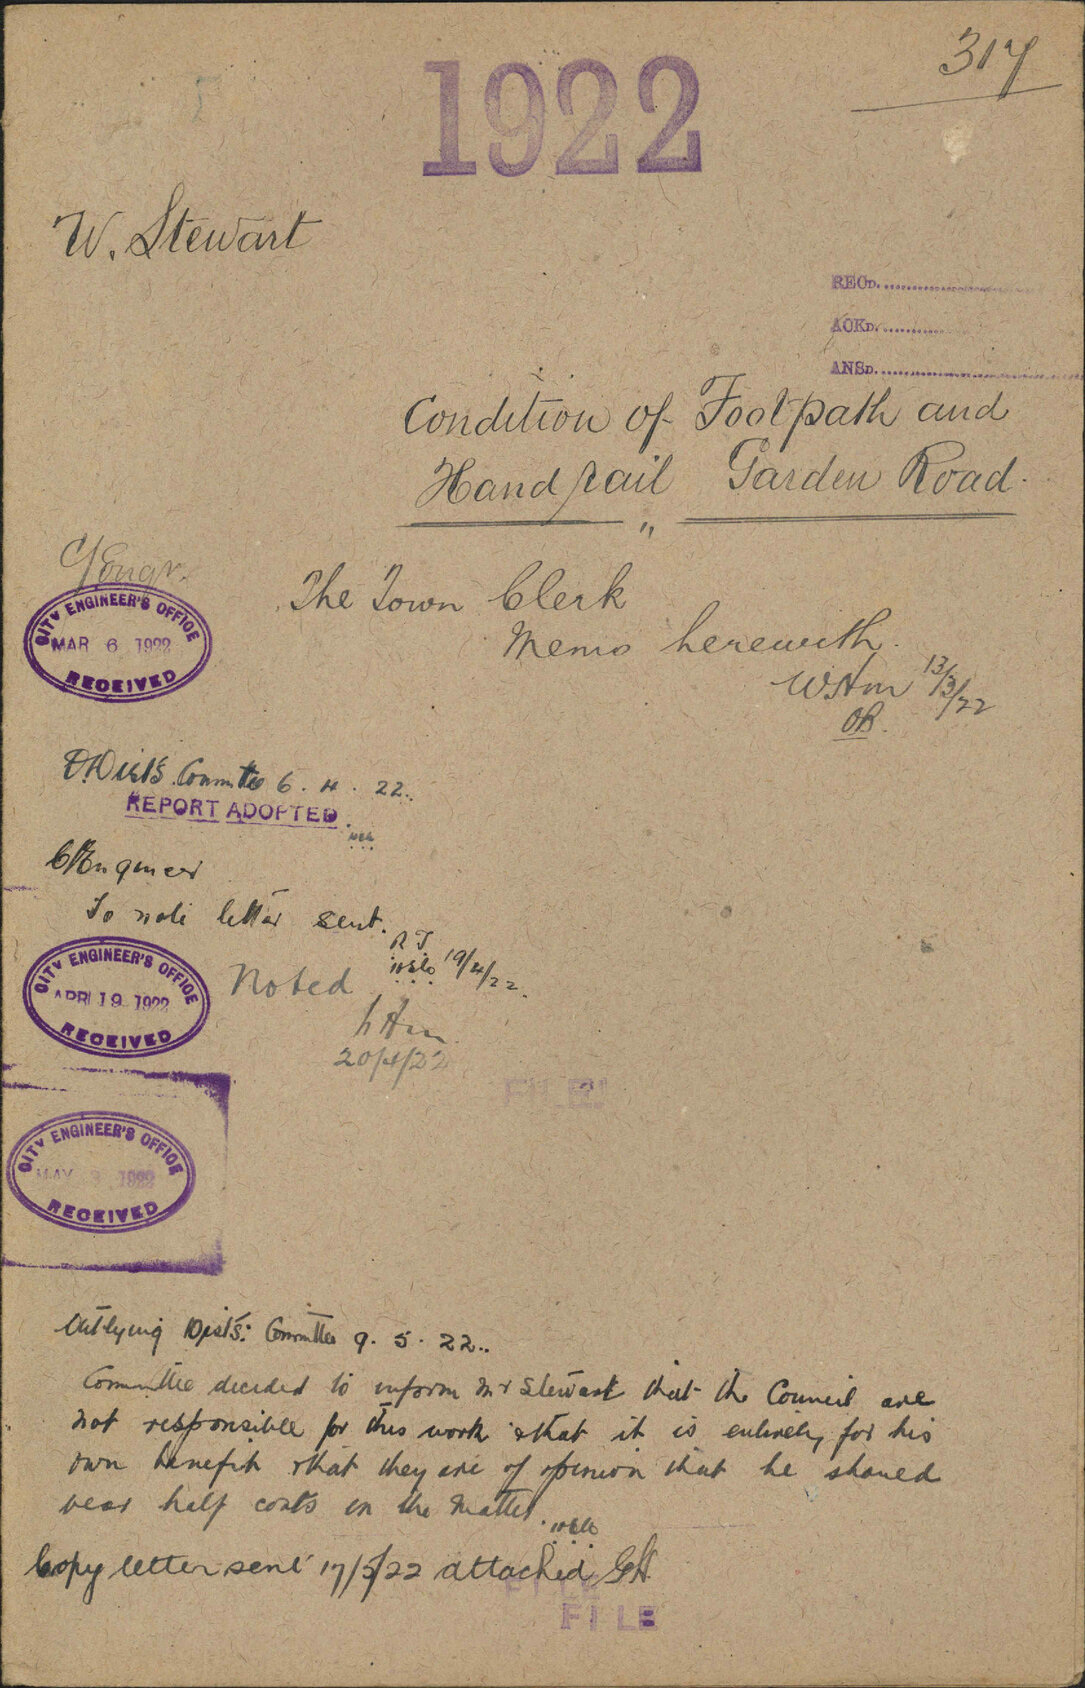 317
1922
W. Stewart
RECD.
ACKD.
ANSD.
Condition of Footpath and
Handrail Garden Road.
"
C/Engr.
CITY ENGINEER'S OFFICE
MAR 6 1922
RECEIVED
The Town Clerk
Memo herewith.
13/3/22
Committee 6.4.22..
REPORT ADOPTED.
C/Engineer
To note letter sent.
19/4/22.
CITY ENGINEER'S OFFICE
APRI 19 1922
RECEIVED
Noted
20/4/22
FILE!
CITY ENGINEER'S OFFICE
MAY 1922
RECEIVED
Outlying Dists: Committee 9.5.22..
Committee decided to inform Mr Stewart that the Council are
not responsible for this work & that it is entirely for his
own benefit & that they are of opinion that he should
bear half costs in the matter.
Copy letter sent 17/5/22 attached GH
FILE
FILE